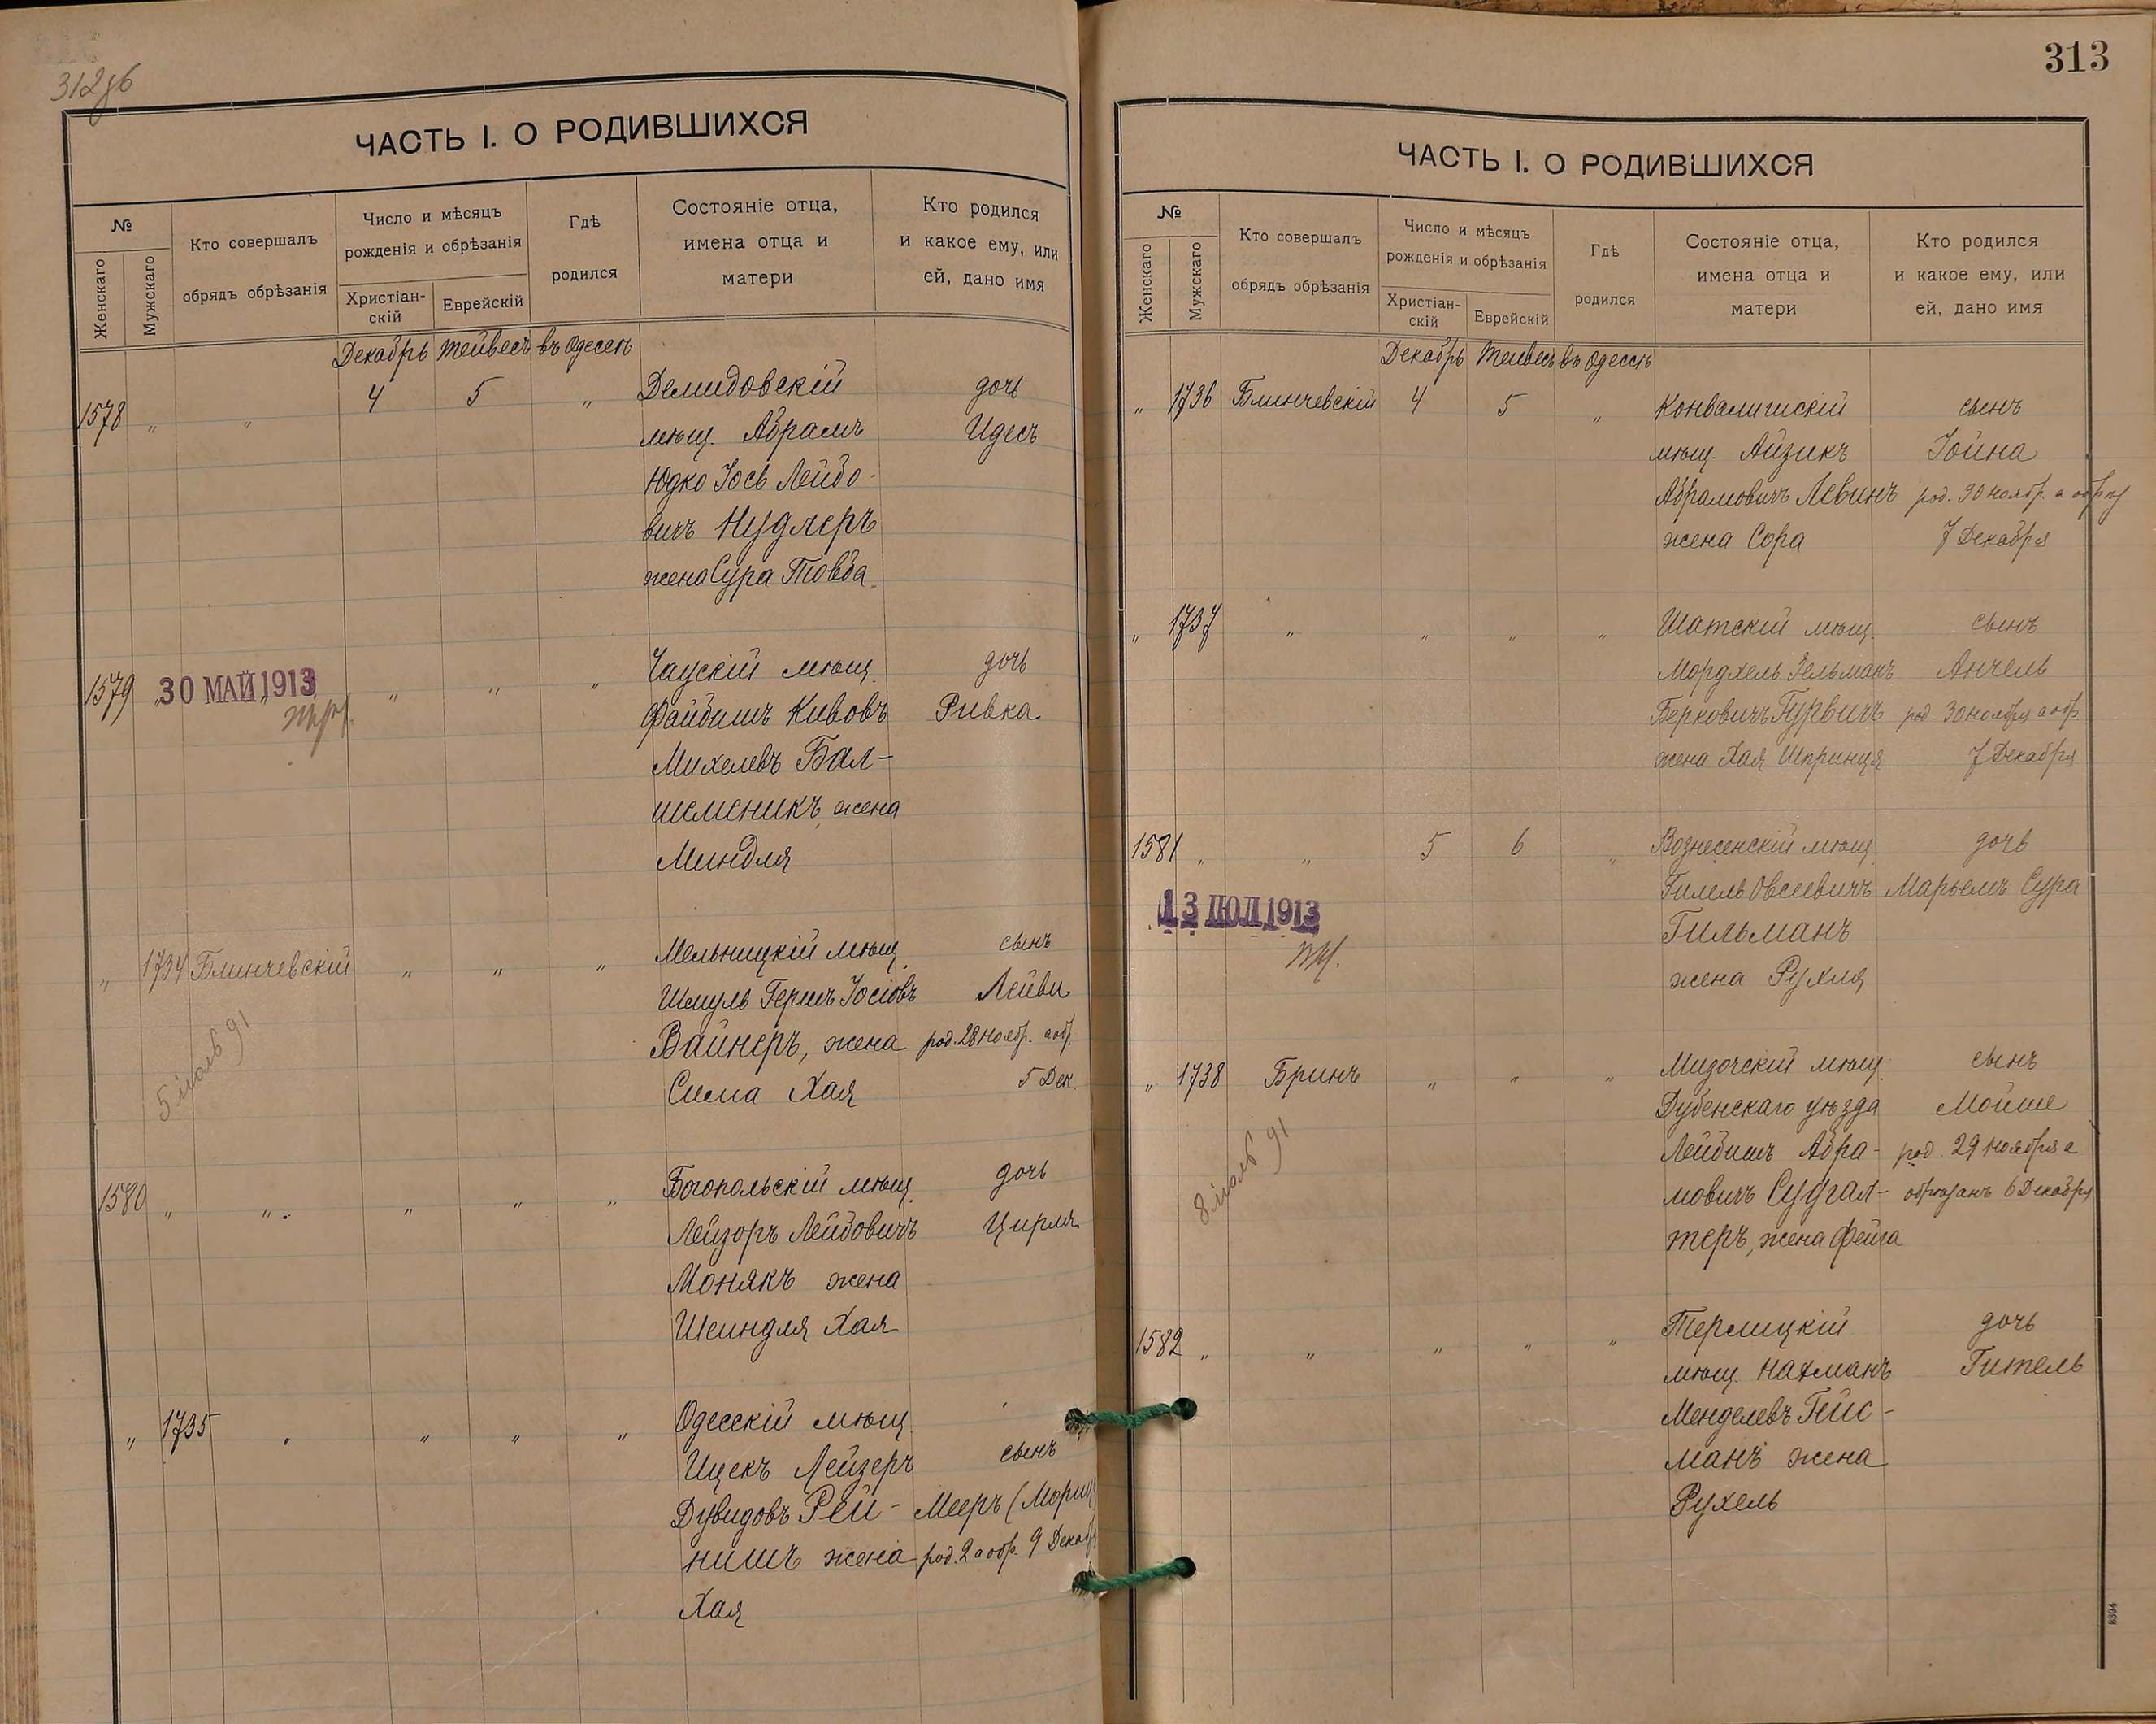 312об
ЧАСТЬ I. О РОДИВШИХСЯ
№
Женскаго
Мужскаго
Кто совершалъ
обрядъ обрѣзанія
Число и мѣсяцъ
рожденія и обрѣзанія
Христіан-
скій
Еврейскій
Гдѣ
родился
Состояніе отца,
имена отца и
матери
Кто родился
и какое ему, или
ей, дано имя
Декабрь Тейвесъ въ Одессѣ
1578 " " 4 5 " Демидовскій дочь
мѣщ. Абрамъ Идесъ
Юдко Іось Лейбо-
вичъ Нудлеръ
жена Сура Товба
1579 30 МАЙ 1913 " " " Чаускій мѣщ. дочь
Файбишъ Кивовъ Ривка
Михелевъ Бал-
шеменикъ, жена
Миндля
" 1734 Блинчевскій " " " Мельницкій мѣщ. сынъ
Шмуль Гершъ Іосіовъ Лейви
Вайнеръ, жена род. 28 Ноябр. а обр.
Сима Хая 5 Дек.
5 іюль 91
1580 " " " " " Богопольскій мѣщ. дочь
Лейзоръ Лейбовичъ Цирля
Монякъ жена
Шейндля Хая
" 1735 " " " " Одесскій мѣщ.
Ицекъ Лейзеръ сынъ
Дувидовъ Рей- Мееръ (Морицъ)
нишъ жена род. 2 а обр. 9 Декабр
Хая
313
ЧАСТЬ I. О РОДИВШИХСЯ
№
Женскаго
Мужскаго
Кто совершалъ
обрядъ обрѣзанія
Число и мѣсяцъ
рожденія и обрѣзанія
Христіан-
скій
Еврейскій
Гдѣ
родился
Состояніе отца,
имена отца и
матери
Кто родился
и какое ему, или
ей, дано имя
Декабрь Тейвесъ въ Одессѣ
" 1736 Блинчевскій 4 5 " Конвалишскій сынъ
мѣщ. Айзикъ Іойна
Абрамовичъ Левинъ род. 30 ноябр. а обр
жена Сора 7 Декабря
" 1737 " " " " Шатскій мѣщ. сынъ
Мордхель Зельманъ Анчель
Берковичъ Гурвичъ род. 30 ноября а обр.
жена Хая Шпринця 7 Декабря
1581 " " 5 6 " Вознесенскій мѣщ. дочь
Гилель Овсеевичъ Марьемъ Сура
13 ІЮЛ 1913
Гильманъ
жена Рухля
" 1738 Бринъ " " " Мизочскій мѣщ. сынъ
Дубенскаго уѣзда Мойше
Лейбишъ Абра- род. 29 ноября а
мовичъ Судгал- обрѣзанъ 6 Декабря
теръ, жена Фейга
8 іюль 91
1582 " " " " " Терлицкій дочь
мѣщ. Нахманъ Гитель
Менделевъ Гейс-
манъ жена
Рухель